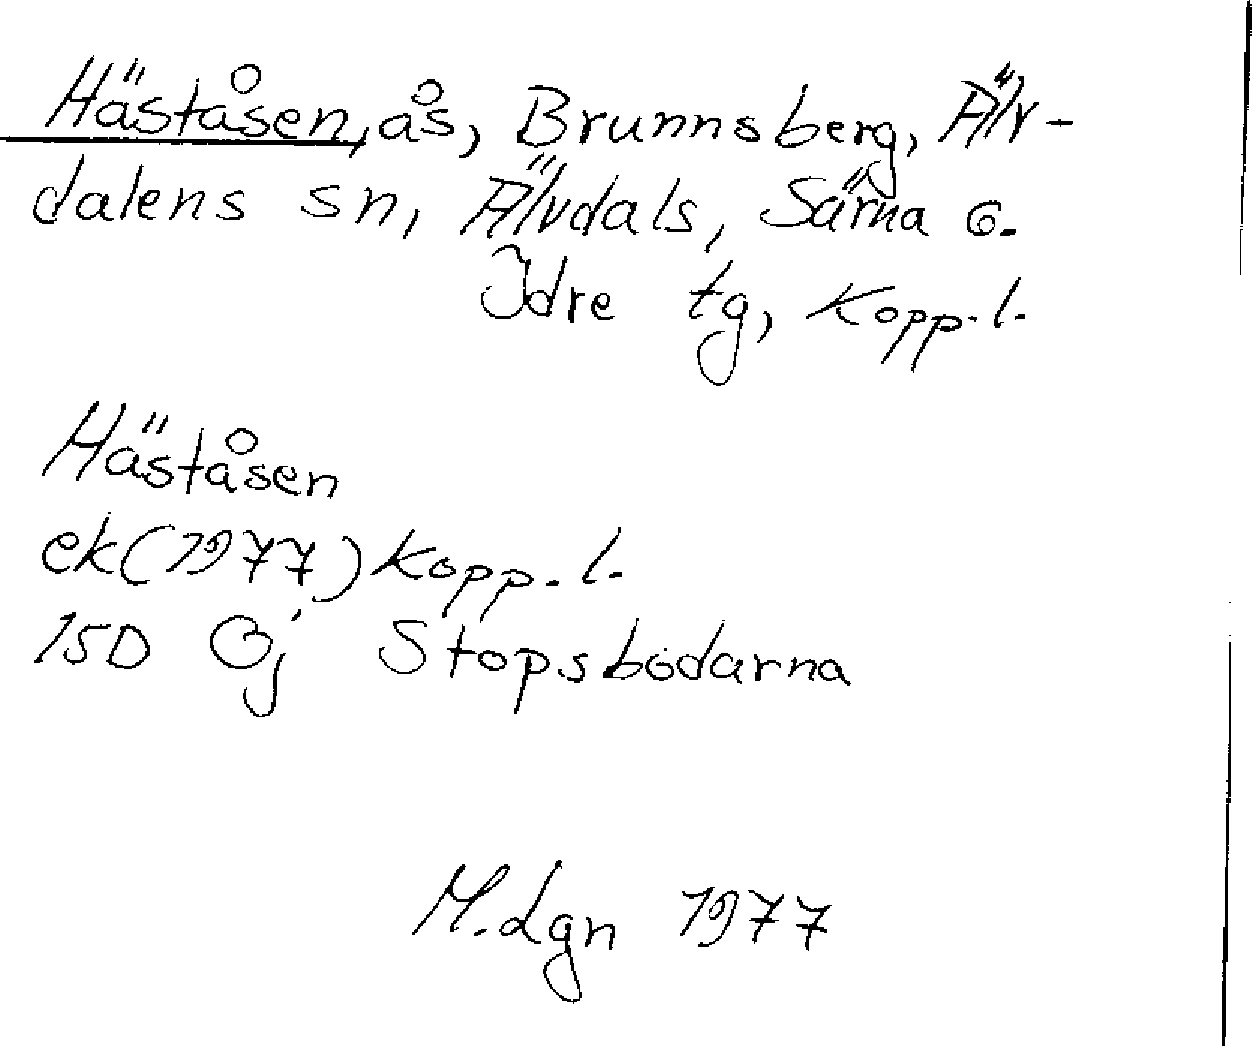 Häståsen, ås, Brunnsberg, Älv-
dalens sn, Älvdals, Särna o.
Idre tg, Kopp. l.
Häståsen
ek(1977) Kopp. l.
15D 0j Stopsbodarna
M.Lgn 1977